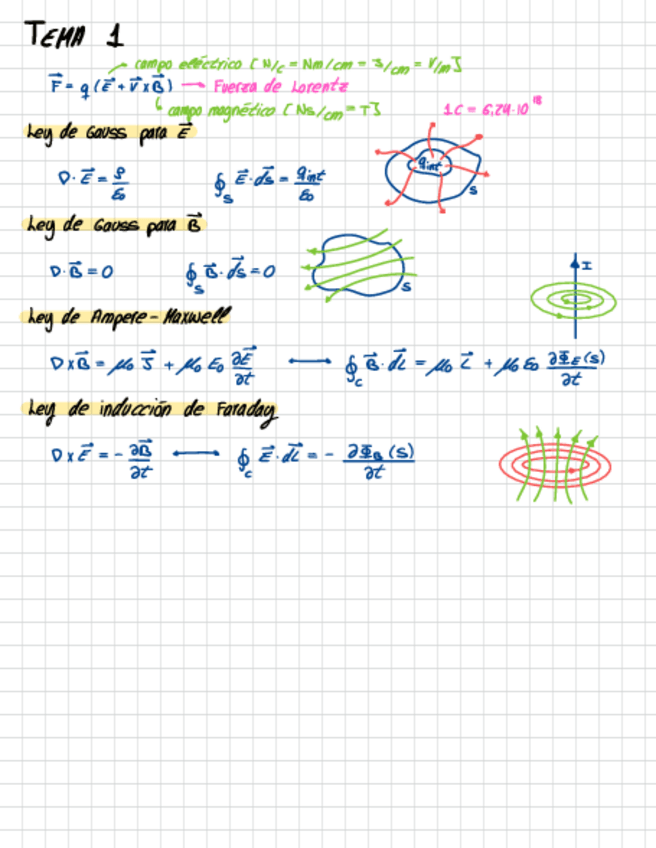 TEMA 1
campo eléctrico [N/C = Nm/Cm = J/Cm = V/m]
F⃗ = q (E⃗ + v⃗ x B⃗) → Fuerza de Lorentz
campo magnético [Ns/Cm = T] 1C = 6,24·10¹⁸
Ley de Gauss para E⃗
∇·E⃗ = ρ/ε₀ ∮s E⃗·ds⃗ = qint/ε₀
qint
S
Ley de Gauss para B⃗
∇·B⃗ = 0 ∮s B⃗·ds⃗ = 0
S
I
Ley de Ampere-Maxwell
∇xB⃗ = μ₀ J⃗ + μ₀ ε₀ ∂E⃗/∂t ⟷ ∮c B⃗·dl⃗ = μ₀ I⃗ + μ₀ ε₀ ∂ΦE(S)/∂t
Ley de inducción de Faraday
∇xE⃗ = - ∂B⃗/∂t ⟷ ∮c E⃗·dl⃗ = - ∂ΦB(S)/∂t